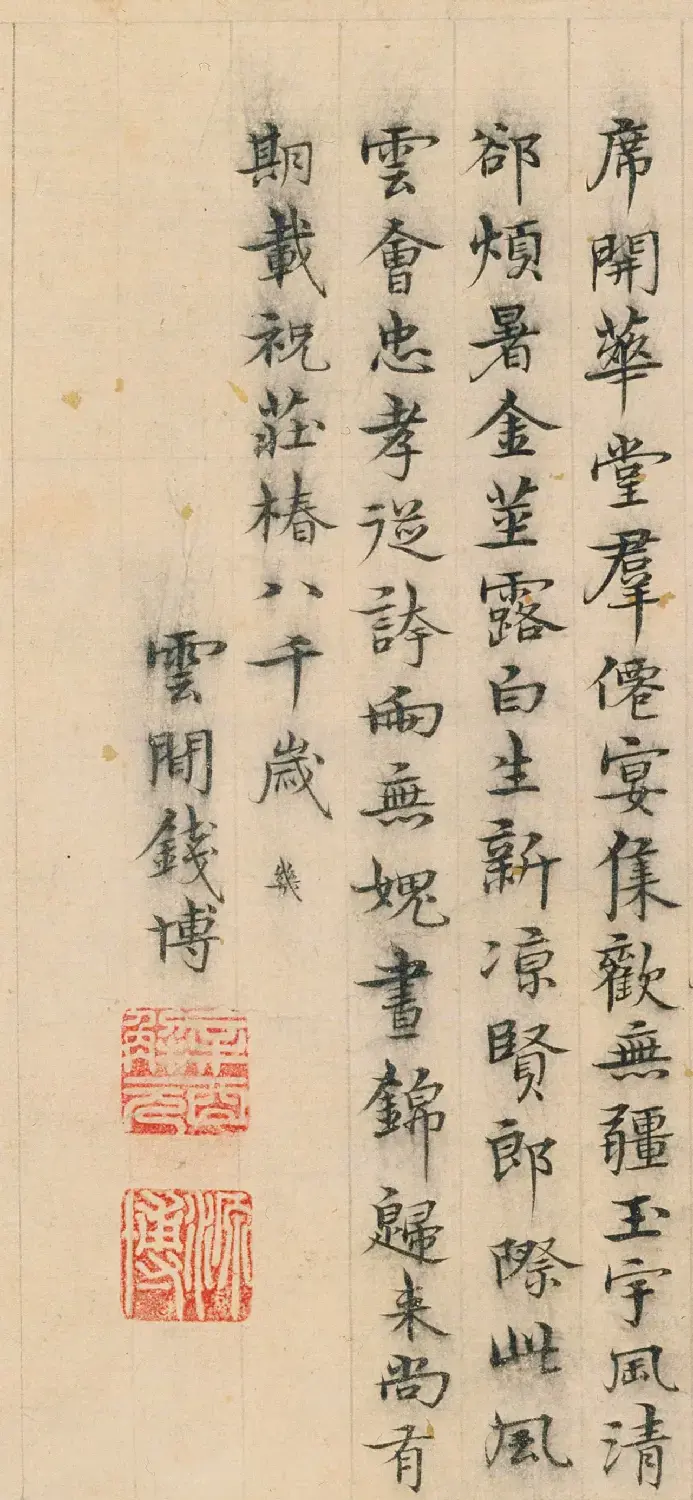 席開華堂羣僊宴集歡無疆玉宇風清
郤煩暑金莖露白生新凉賢郎際此風
雲會忠孝從誇兩無媿晝錦歸来尚有
期載祝莊椿八千歲
雲間錢博